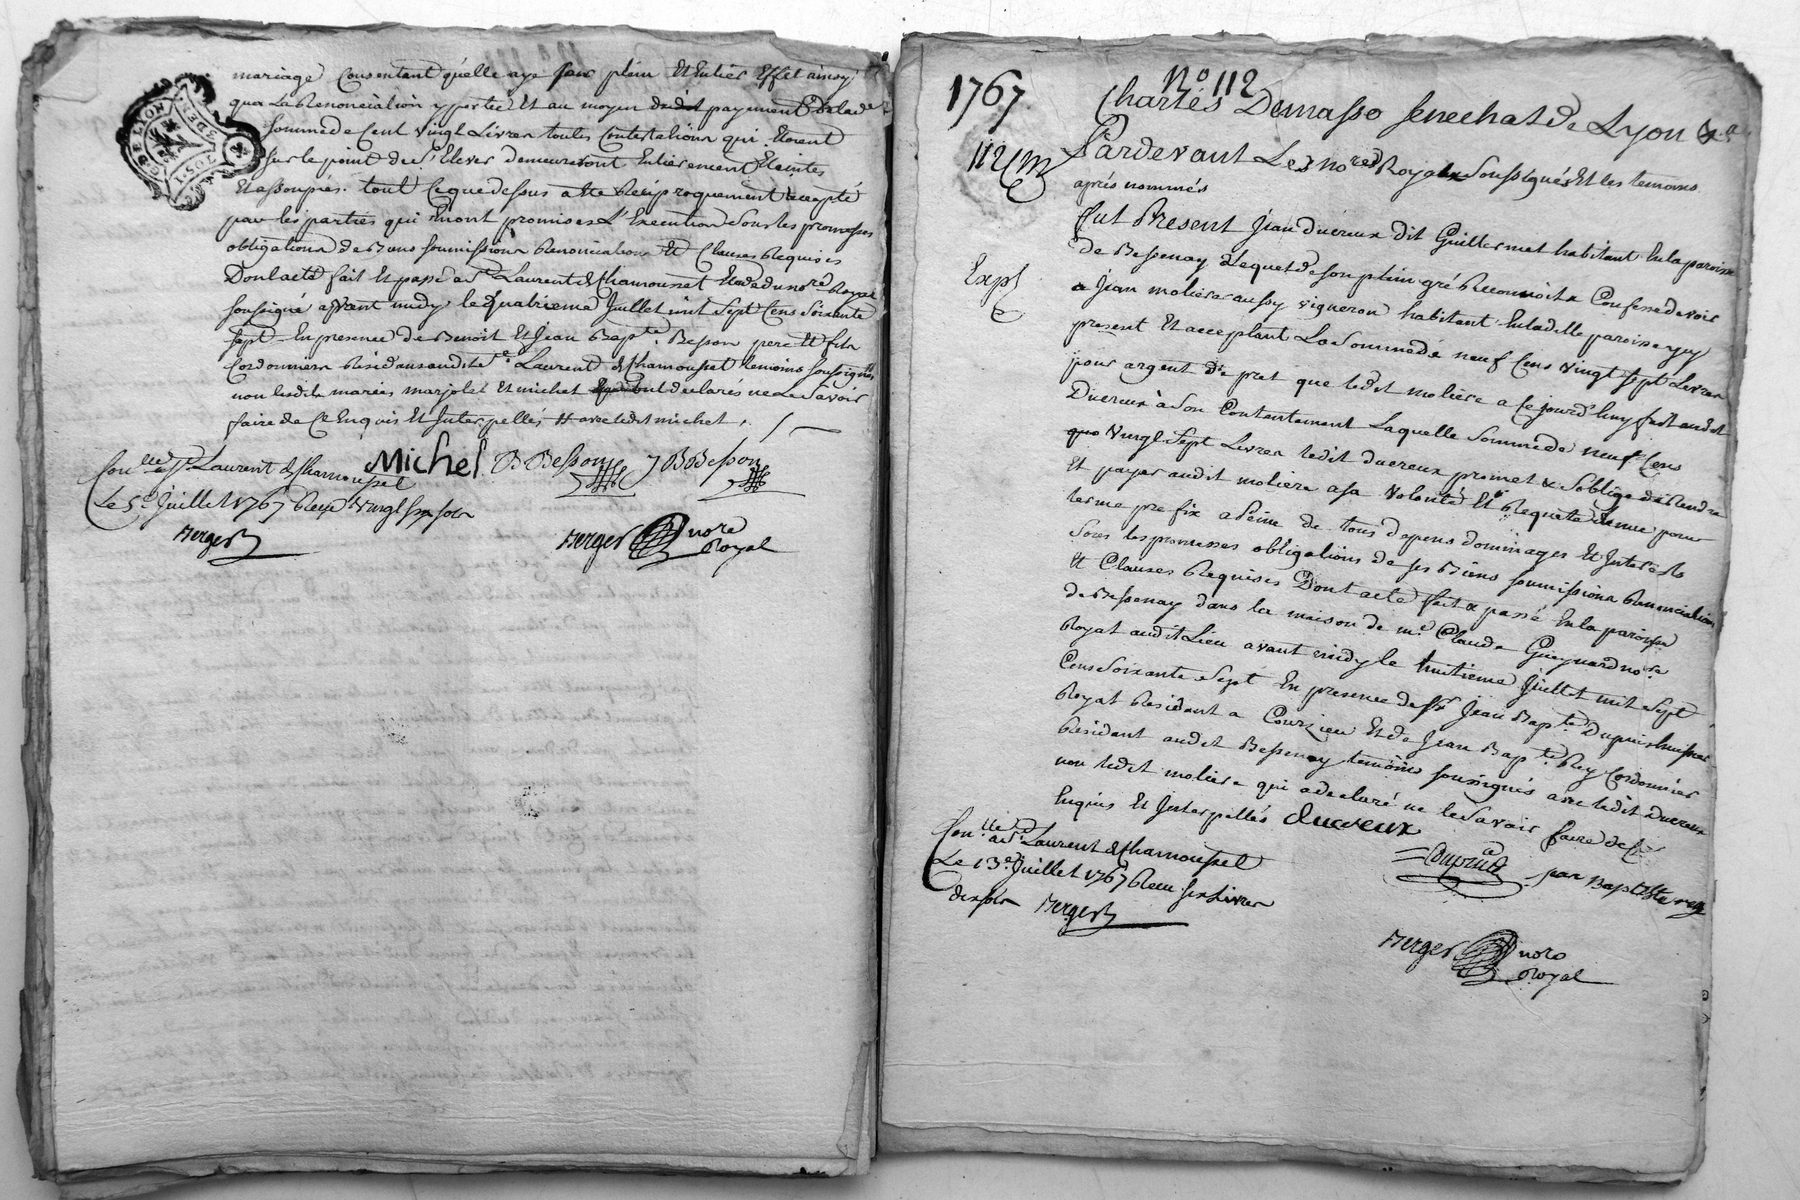 mariage Consentant qu'elle aye son plein Et Entier Effet ainsy
que La Renonciation y portée Et au moyen dudit payement de lade
somme de Cent Vingt Livres toutes Contestations qui Etoient
sur le point de s'Elever demeureront Entierement Eteintes
Et assoupies. tout Ce que dessus a été Reciproquement accepté
par les parties qui En ont promis L'Execution sous les promesses
obligations de Biens soumissions Renonciations Et Clauses Requises
Dont acte fait Et passé a St Laurent de Chamousset Etude du nore Royal
soussigné avant midy le quatrieme Juillet mil sept Cens soixante
sept En presence de Benoit Et Jean Bapte. Besson pere Et fils
Cordonniers Residans audit St. Laurent de Chamousset temoins soussignés
non lesdits mariés marjolet Et michet qui ont declarés ne Le Savoir
faire de Ce Enquis Et Interpellés # avec ledit michet.
Michel B Besson J B Besson
Conlle a St. Laurent de Chamousset
Le 5e. Juillet 1767 Reçu Vingt six sols
Berger
Berger nore
Royal
DE LYON
3 DEN.
1767
No 112
112 m
Charles Demasso senechal de Lyon &a
Pardevant Les nores Royaux Soussignés Et les temoins
aprés nommés
Expé
fut Present Jean ducreux dit Guillermet habitant En la paroisse
de Bessenay Lequel de son plein gré Reconnoit & Confesse devoir
a Jean moliere aussy vigneron habitant En ladite paroisse icy
present Et acceptant La Somme de neuf Cens vingt sept Livres
pour argent de pret que ledit moliere a Ce jourd'huy fait audit
Ducreux à Son Contentement Laquelle Somme de neuf Cens
Vingt Sept Livres ledit ducreux promet & S'oblige de Rendre
Et payer audit moliere a sa volonté Et Requete pour
terme prefix a Peine de tous depens dommages Et Interets
Sous les promesses obligations de ses Biens soumissions Renonciations
Et Clauses Requises Dont acte fait & passé En la paroisse
de Bessenay dans la maison de me. Claude Guynard nore
Royal audit Lieu avant midy le huitieme Juillet mil sept
Cens Soixante Sept En presence de Sr Jean Bapte. Dupuis huissier
Royal Residant a Courzieu Et de Jean Bapte. Rey Cordonnier
Residant audit Bessenay temoins soussignés avec ledit Ducreux
non ledit moliere qui a declaré ne le Savoir faire de Ce
Enquis Et Interpellés ducreux
Dupuis Jean Baptiste rey
Conlle a St. Laurent de Chamousset
Le 13e. Juillet 1767 Reçu six Livres
dix sols Berger
Berger nore
Royal